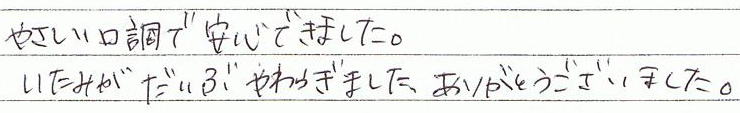 やさしい口調で安心できました。
いたみがだいぶやわらぎました、ありがとうございました。